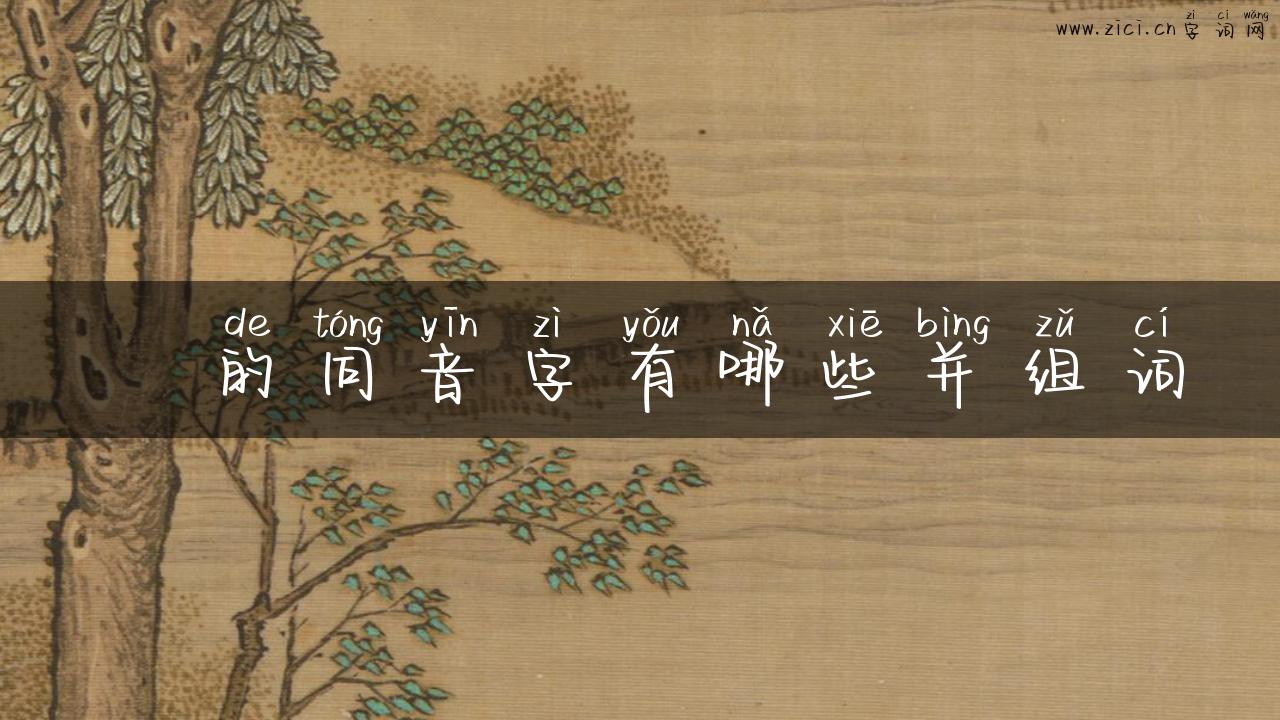 zì cí wǎng
www.zici.cn字词网
de tóng yīn zì yǒu nǎ xiē bìng zǔ cí
的同音字有哪些并组词